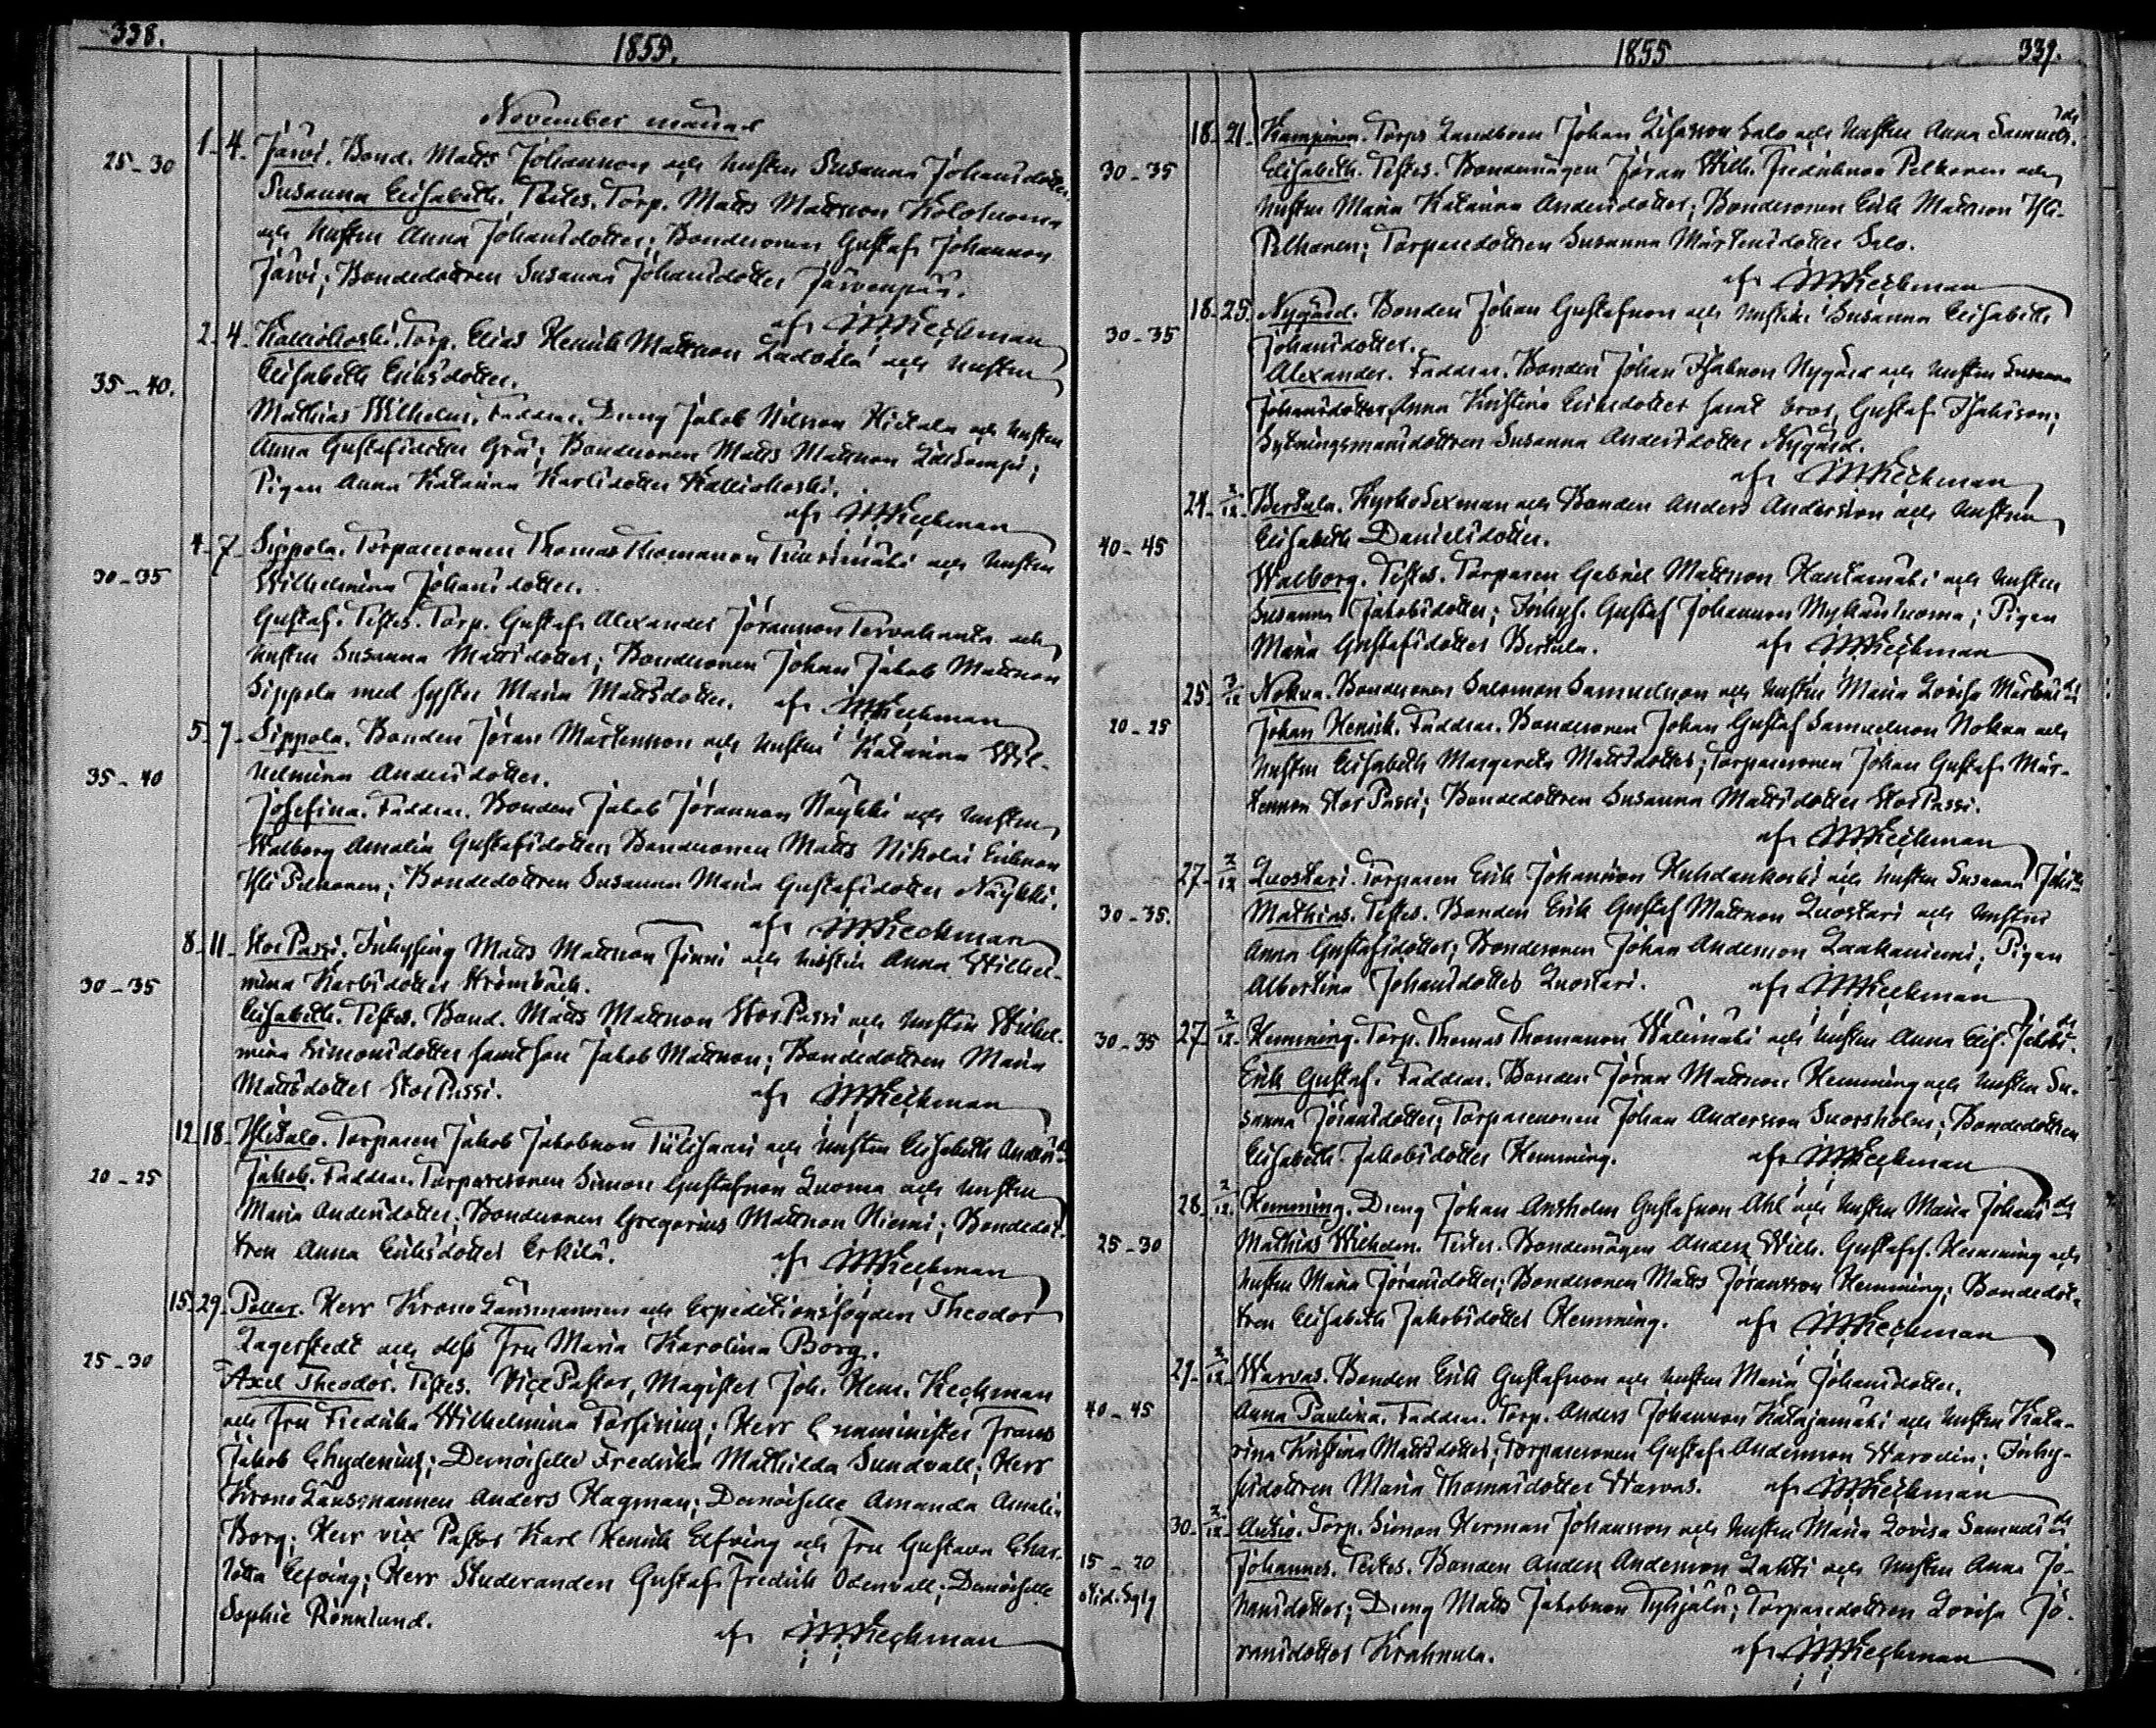 338.
1855.
November månad
25-30
1-4. Järvi. Bond. Matts Johansson och hustru Susanna Johansdotter.
Susanna Elisabeth. Testes. Torp. Matts Mattsson
och hustru Anna Johansdotter; Bondesonen Gustaf Johansson
Järvi; Bondedottren Susanna Johansdotter Järvenpää.
afr JHKeckman
2-4. Kalliokoski. Torp. Elias Henrik Mattsson och hustru
35-40.
Elisabeth Eriksdotter.
Mathias Wilhelm. Faddrar. Dreng Jakob Nilsson Hietala och hustru
Anna Gustafsdotter Grå; Bondesonen Matts Mattsson
Pigan Anna Katarina Karlsdotter Kalliokoski.
afr JHKeckman
4-7- Sippola. Torparesonen Thomas Thomasson och hustru
30-35
Wilhelmina Johansdotter.
Gustaf. Testes. Torp. Gustaf Alexander Jöransson och
hustru Susanna Mattsdotter; Bondesonen Johan Jakob Mattsson
Sippola med syster Maria Mattsdotter. afr JHKeckman
5-7- Sippola. Bonden Jöran Mårtensson och hustru Katarina Wil-
35-40
helmina Andersdotter.
Josefina. Faddrar. Bonden Jakob Jöransson Näykki och hustru
Walborg Amalia Gustafsdotter; Bondesonen Matts Nikolai Eriksson
Ylli Pelkonen; Bondedottren Susanna Maria Gustafsdotter Näykki.
afr JHKeckman
8-11- Stor Passi. Inhysing Matts Mattsson Finni och hustru Anna Wilhel-
30-35
mina Karlsdotter Strömbäck.
Elisabeth. Testes. Bond. Matts Mattsson Stor Passi och hustru Wilhel-
mina Simonsdotter samt son Jakob Mattsson; Bondedottren Maria
Mattsdotter Stor Passi. afr JHKeckman
12-18- Ylisalo. Torparen Jakob Jakobsson och hustru Elisabeth Anders d:r
20-25
Jakob. Faddrar. Torparesonen Simon Gustafsson Luoma och hustru
Maria Andersdotter; Bondesonen Gregorius Mattsson Niemi; Bondedot-
tren Anna Eriksdotter Erkilä. afr JHKeckman
15-29. Peltar. Herr Krono Länsmannen och Expeditionsfogden Theodor
Lagerstedt och dess Fru Maria Karolina Borg.
25-30
Axel Theodor. Testes. Vice Pastor, Magister Joh. Henr. Keckman
och Fru Fredrika Wilhelmina Forssing; Herr Comminister Frans
Jakob Chydenius; Demoiselle Fredrika Mathilda Sundvall; Herr
Krono Länsmannen Anders Hagman; Demoiselle Amanda Amalia
Borg; Herr vice Pastor Karl Henrik Elfving och Fru Gustava Char-
lotta Elfving; Herr Studeranden Gustaf Fredrik Odenvall; Demoiselle
Sophie Rönnlund.
afr JHKeckman
1855
339.
18-21- Kamppinen. Torps Landbon Johan Salo och hustru Anna Samuels d:r
30-35
Elisabeth. Testes. Bondemågen Jöran Wilh. Fredriksson Pelkonen och
hustru Maria Katarina Andersdotter; Bondesonen Erik Mattsson Ylli-
Pelkonen; Torparedottren Susanna Mårtensdotter Salo.
afr JHKeckman
18-25. Nygård. Bonden Johan Gustafsson och hustru Susanna Elisabeth
30-35
Johansdotter.
Alexander. Faddrar. Bonden Johan Isaksson Nygård och hustru Susanna
Johansdotter, Anna Kristina Eriksdotter samt bror, Gustaf Isaksson;
Sytningsmansdottren Susanna Andersdotter Nygård.
afr JHKeckman
24-2/12- Bertula. Kyrko Sexman och Bonden Anders Andersson och hustru
40-45
Elisabeth Danielsdotter.
Walborg. Testes. Torparen Gabriel Mattsson Hautamäki och hustru
Susanna Jakobsdotter; Inhys. Gustaf Johansson; Pigan
Maria Gustafsdotter Bertula. afr JHKeckman
25. 2/12 Nokua. Bondesonen Salomon Samuelsson och hustru Maria Lovisa Mårtens d:r
20-25
Johan Henrik. Faddrar. Bondesonen Johan Gustaf Samuelsson Nokua och
hustru Elisabeth Margareta Mattsdotter; Torparesonen Johan Gustaf Mår-
tensson Stor Passi; Bondedottren Susanna Mattsdotter Stor Passi.
afr JHKeckman
27-2/12 Luostari. Torparen Erik Johansson Huhdankoski och hustru Susanna Johs d:r
30-35.
Mathias. Testes. Bonden Erik Gustaf Mattsson Luostari och hustru
Anna Gustafsdotter; Bondesonen Johan Andersson Laakaniemi; Pigan
Albertina Johansdotter Luostari. afr JHKeckman
30-35
27 2/12- Hemming. Torp. Thomas Thomasson Välimäki och hustru Anna Elis. Jakobs d:r
Erik Gustaf. Faddrar. Bonden Jöran Mattsson Hemming och hustru Su-
sanna Jöransdotter; Torparesonen Johan Andersson; Bondedottren
Elisabeth Jakobsdotter Hemming. afr JHKeckman
28- 2/12. Hemming. Dreng Johan Ansholm Gustafsson Ahl och hustru Maria Johans d:r
25-30
Mathias Wilhelm. Testes. Bondemågen Anders Wilh. Gustafss. Hemming och
hustru Maria Jöransdotter; Bondesonen Matts Jöransson Hemming; Bondedot-
tren Elisabeth Jakobsdotter Hemming. afr JHKeckman
29- 2/12 Warvas. Bonden Erik Gustafsson och hustru Maria Johansdotter.
40-45
Anna Paulina. Faddrar. Torp. Anders Johansson Katajamäki och hustru Kata-
rina Kristina Mattsdotter; Torparesonen Gustaf Andersson Warvolin; Inhy-
sedottren Maria Thomasdotter Warvas. afr JHKeckman
30- 2/12- Autio. Torp. Simon Herman Johansson och hustru Maria Lovisa Samuels d:r
15-20
Johannes. Testes. Bonden Anders Andersson Lahti och hustru Anna Jo-
hansdotter; Dreng Matts Jakobsson Tyhjälä; Torparedottren Lovisa Jö-
ransdotter Krahnula. afr JHKeckman